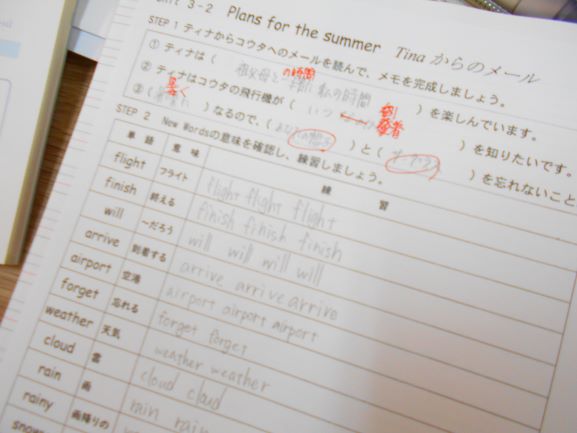 3-2 Plans for the summer Tinaからのメール
STEP 1 ティナからコウタへのメールを読んで、メモを完成しましょう。
① ティナは( 祖父母との時間 )を楽しんでいます。
② ティナはコウタの飛行機が( いつ )を知りたいです。
③ ( 暑く )なるので、( )と( )を忘れないこと
STEP 2 New Wordsの意味を確認し、練習しましょう。
単語 意味 練習
flight フライト flight flight flight
finish 終える finish finish finish
will ～だろう will will will will
arrive 到着する arrive arrive arrive
airport 空港 airport airport airport
forget 忘れる forget forget
weather 天気 weather weather
cloud 雲 cloud cloud
rain 雨 rain rain
rainy 雨降りの